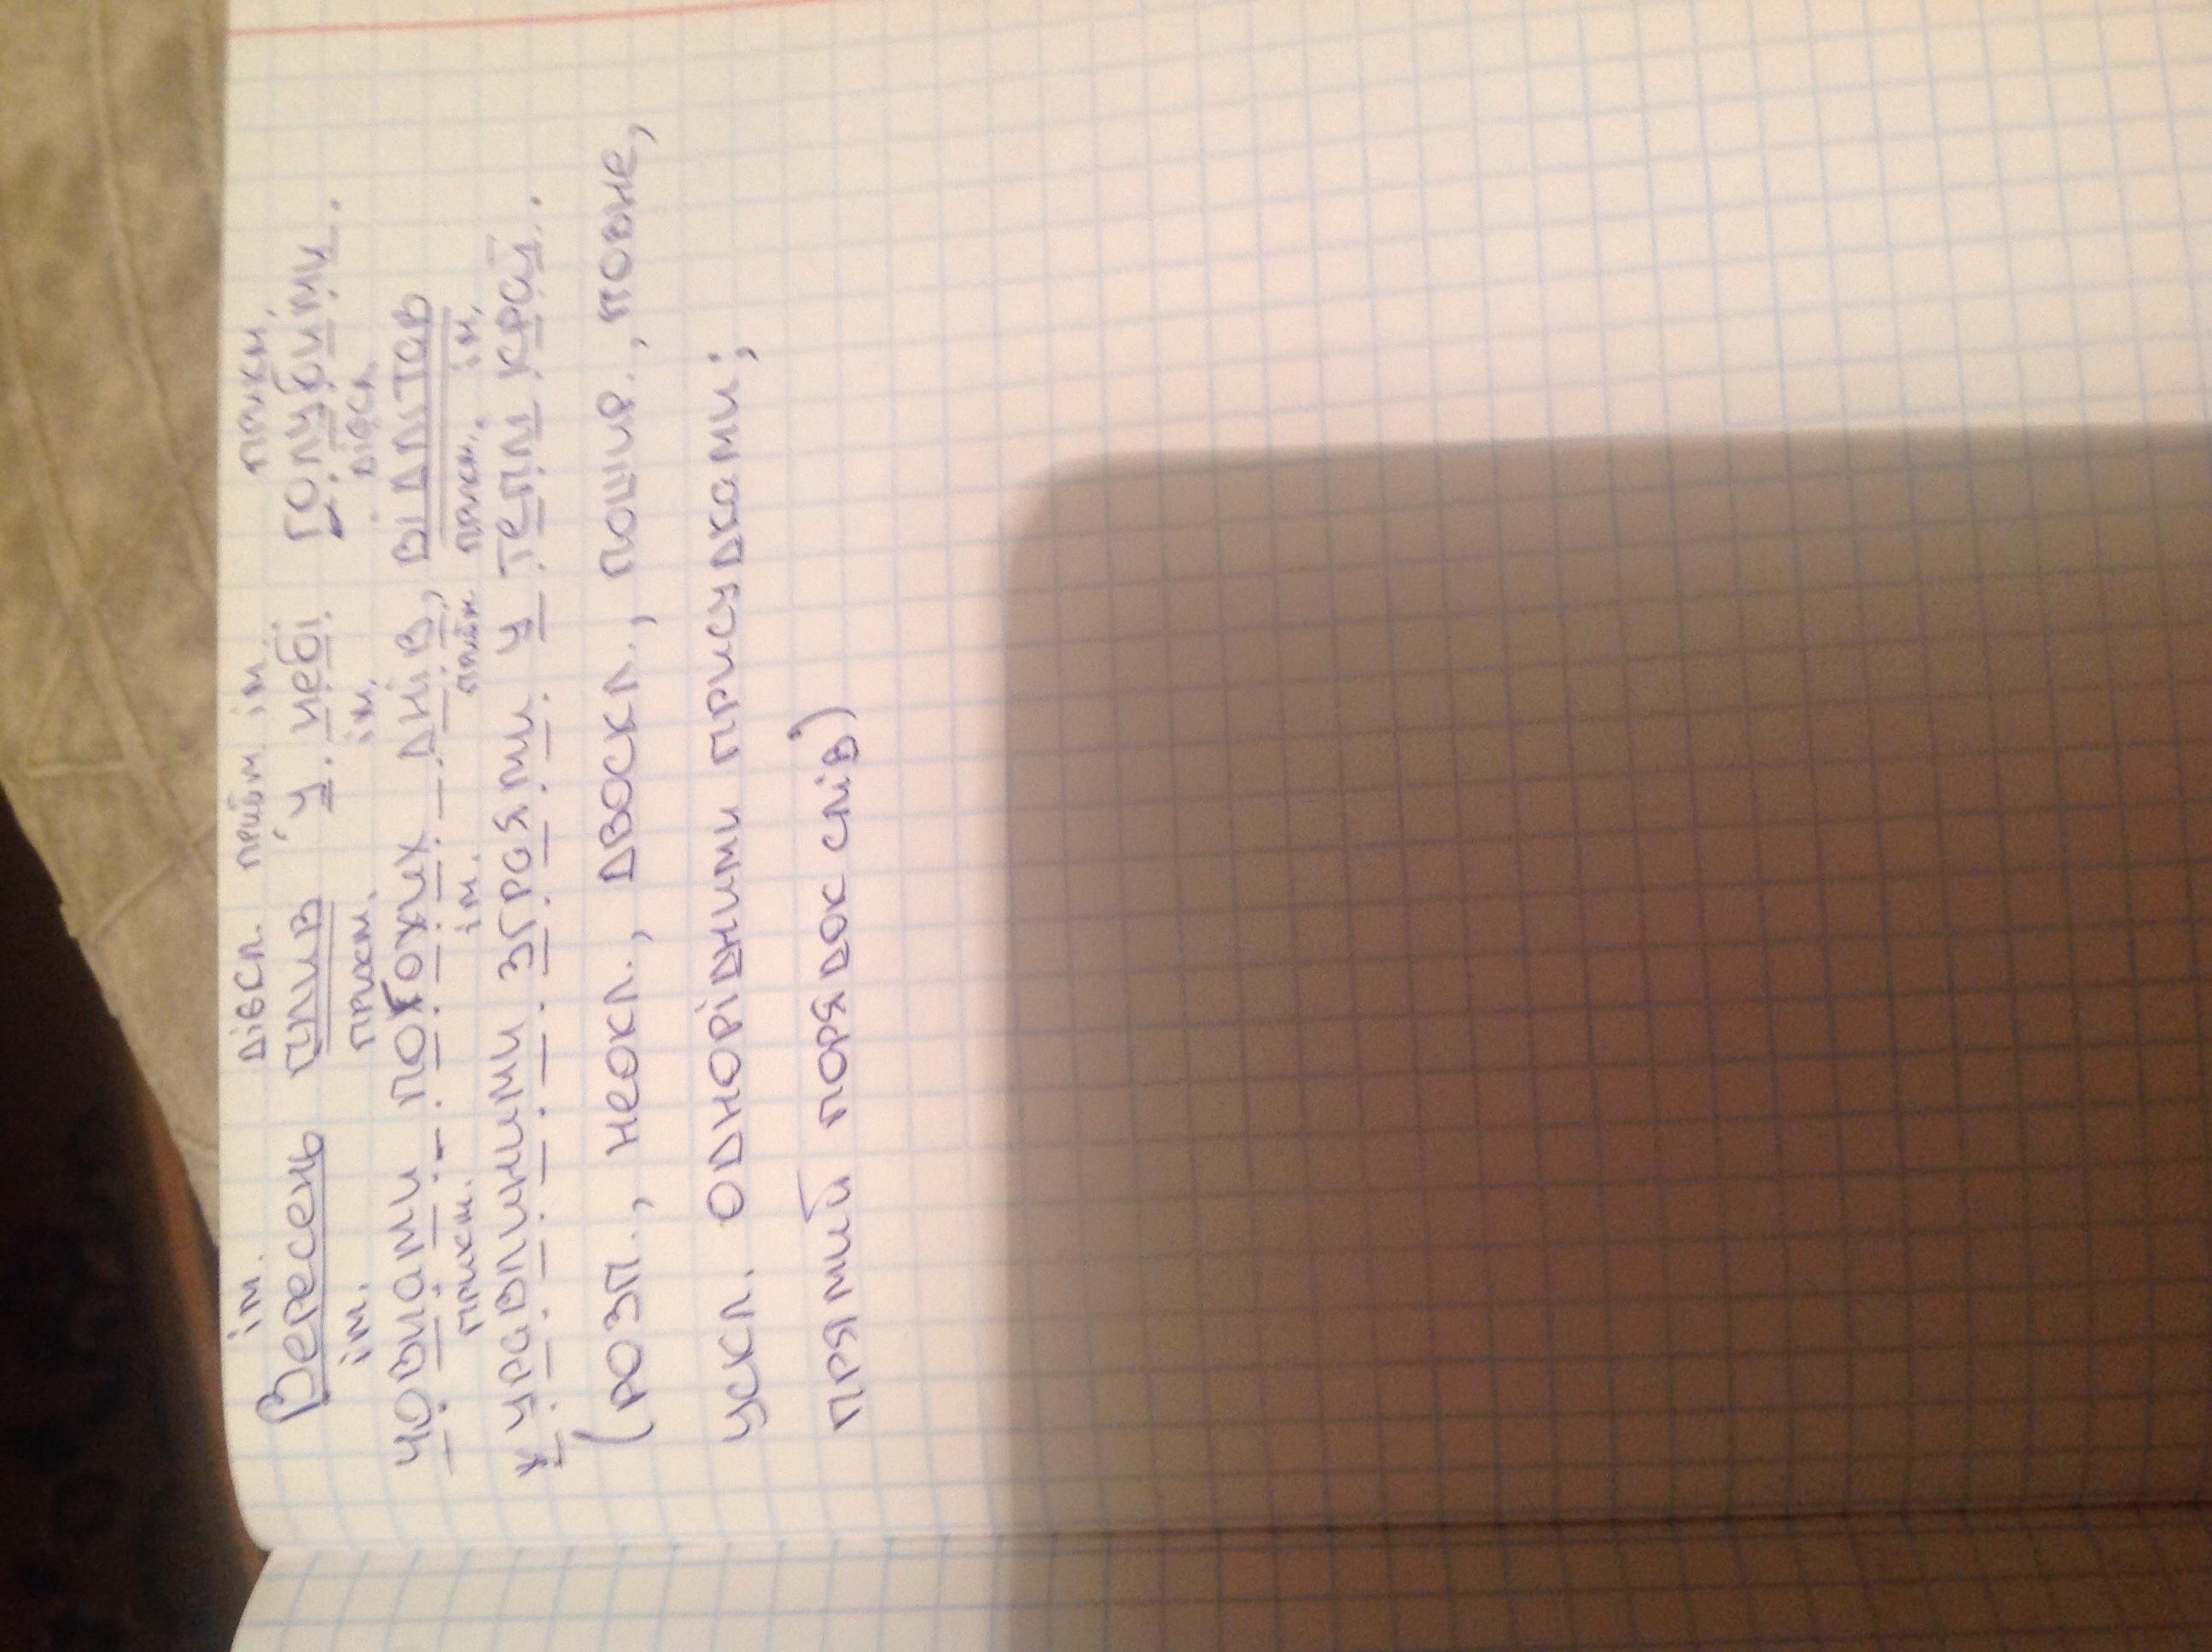 ім. дієсл. прийм ім. прикм,
Вересень плив у небі голубими
ім. прикм. ім, дієсл
човнами погожих днів, відлітав
прикм. ім. прийм прикм, ім,
журавлиними зграями у теплі краї.
(розп., неокл., двоскл., пошир., повне,
ускл. однорідними присудками;
прямий порядок слів)